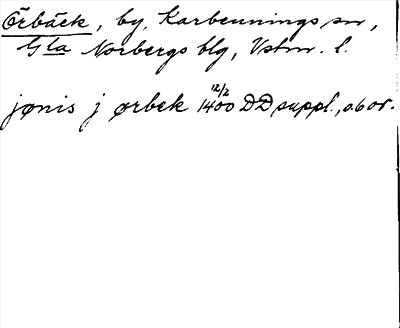 Örbäck, by, Karbennings sn,
Gla Norbergs blg, Vstm. l.
jønis j ørbek 12/2 1400 DD suppl., o. 6 or.